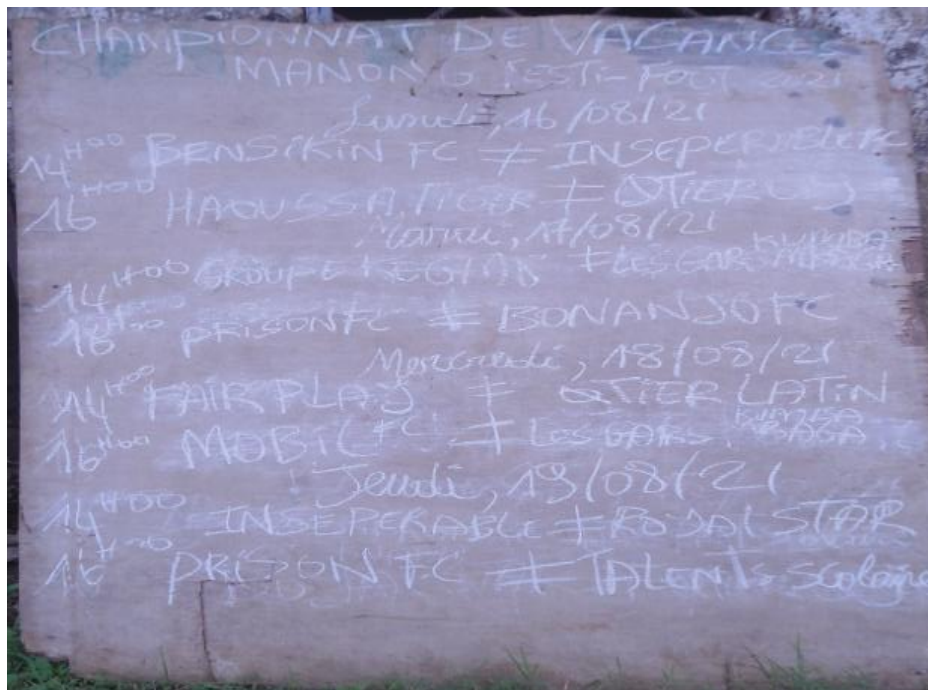 CHAMPIONNAT DE VACANCES
MANONG FESTI-FOOT 2021
Lundi, 16/08/21
14H00 BENSIKIN FC ≠ INSEPERABLE FC
16H00 HAOUSSA TIGER ≠ QTIER
Mardi, 17/08/21
14H00 GROUPE ≠ LES GARS KUMBA
16H00 PRISON FC ≠ BONANJO FC
Mercredi, 18/08/21
14H00 FAIR PLAY ≠ QTIER LATIN
16H00 MOBIL FC ≠ LES GARS KUMBA
Jeudi, 19/08/21
14H00 INSEPERABLE ≠ ROYAL STAR
16H00 PRISON FC ≠ TALENTS scolaire